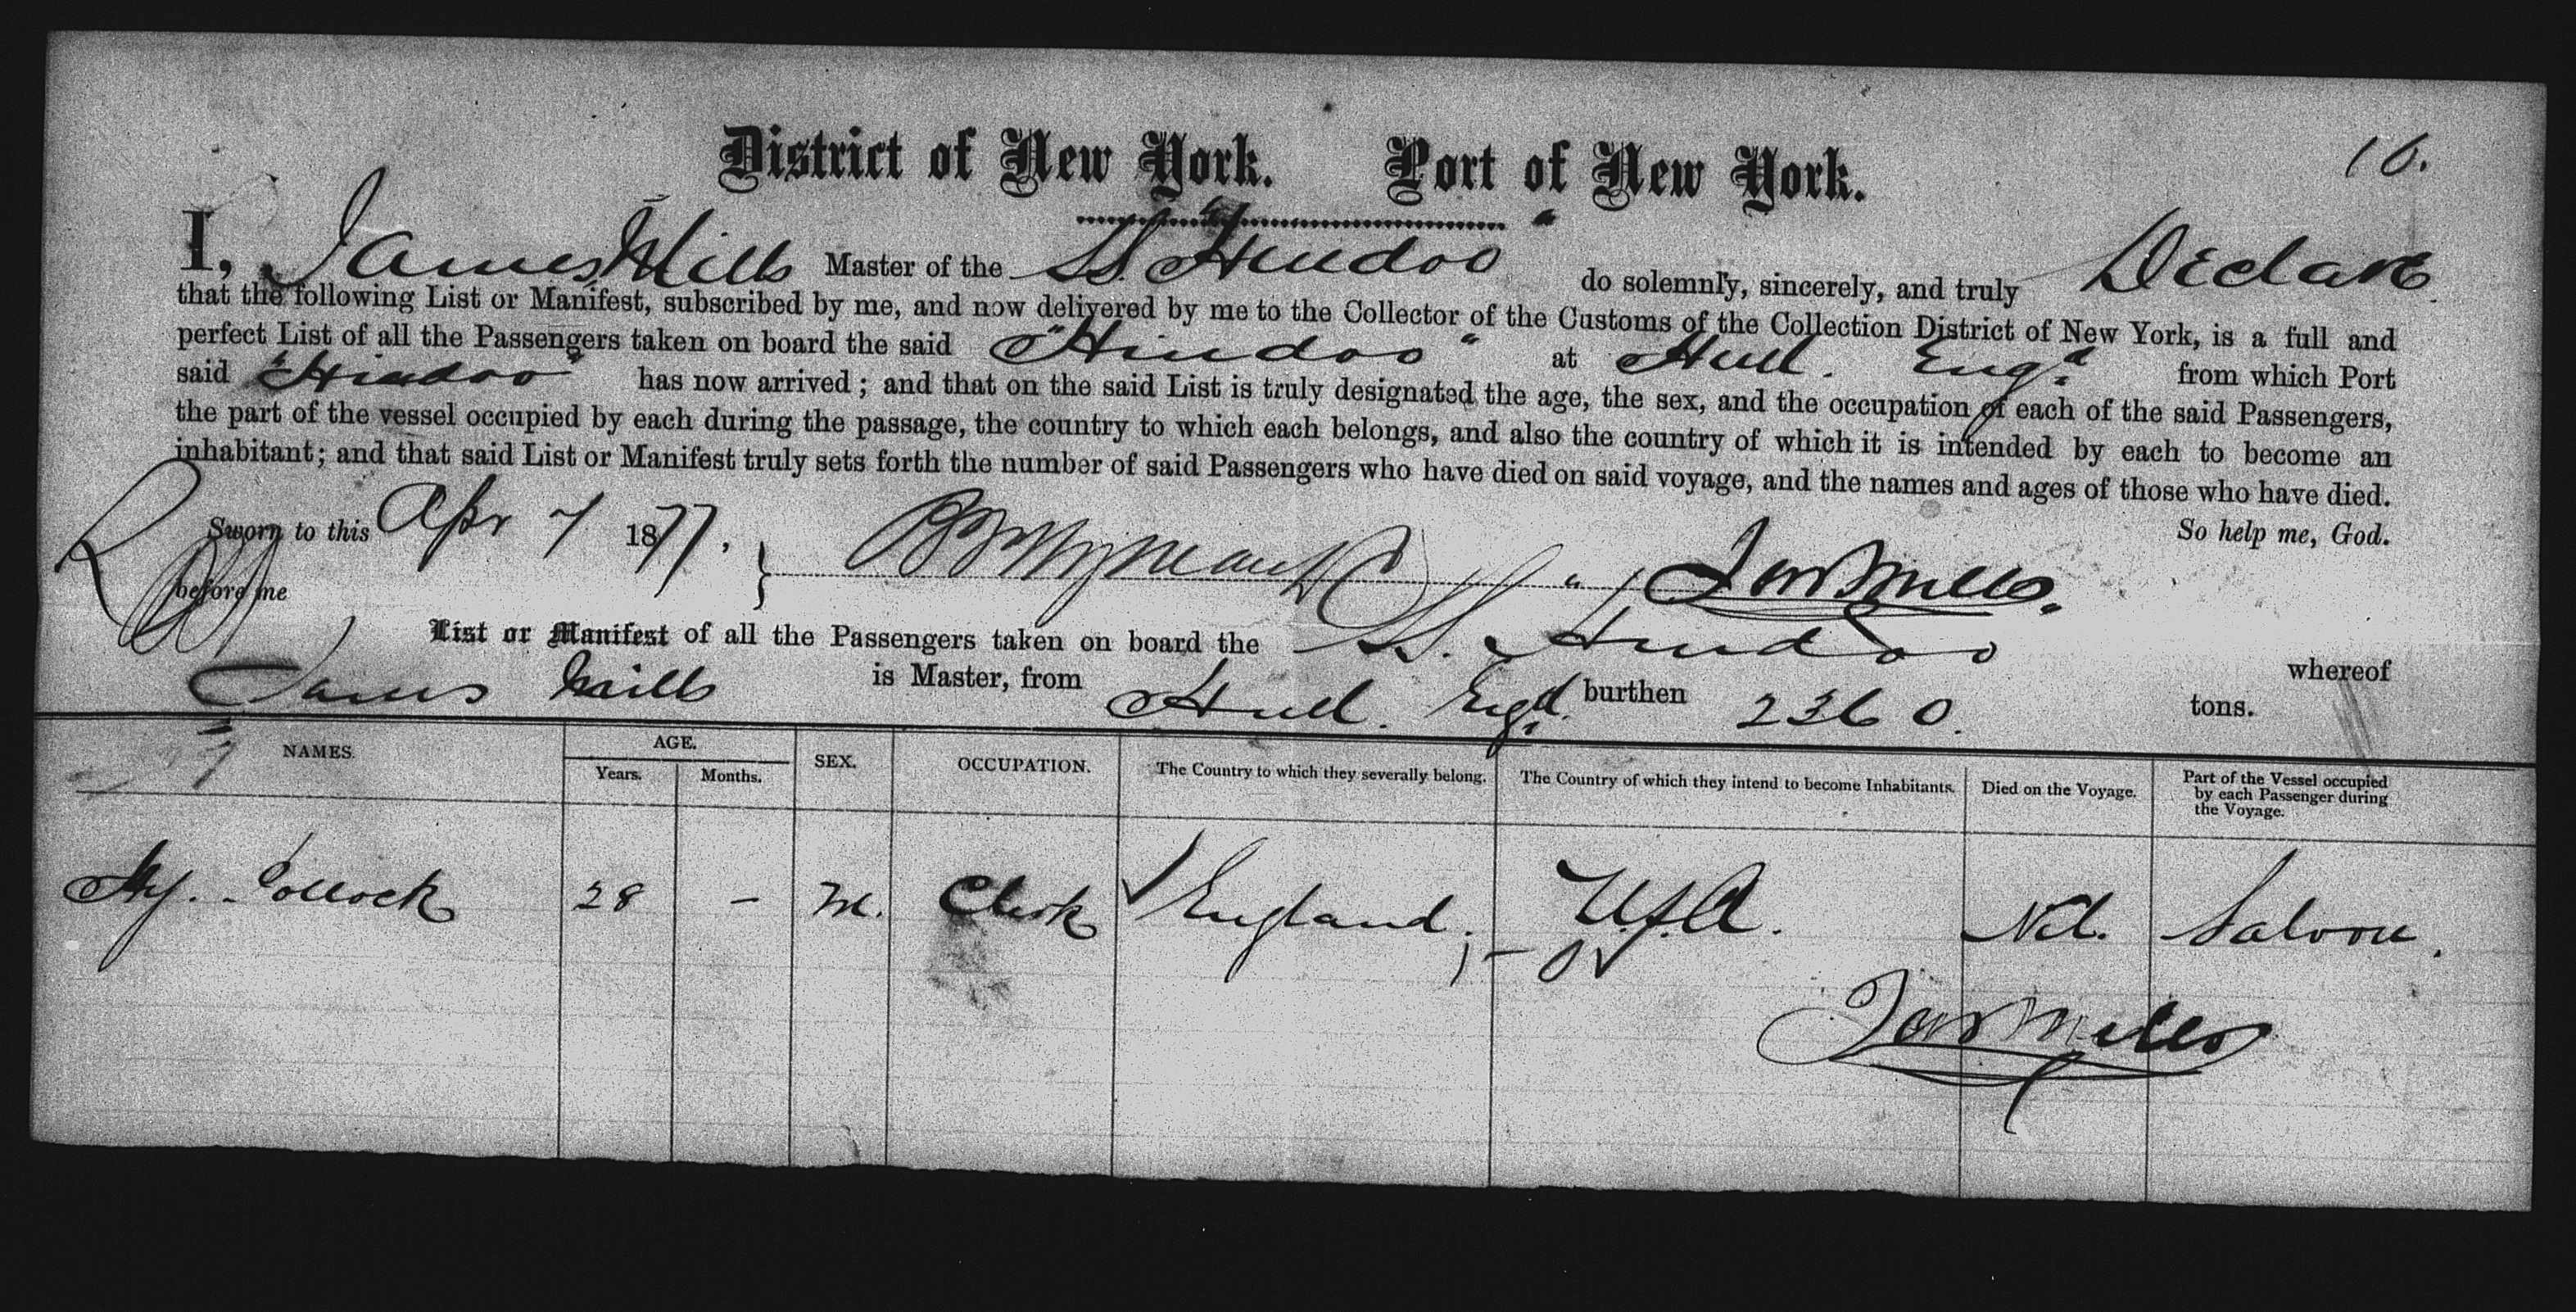 District of New York. Port of New York.
10.
I, James Mills Master of the SS. "Hindoo" do solemnly, sincerely, and truly Declare
that the following List or Manifest, subscribed by me, and now delivered by me to the Collector of the Customs of the Collection District of New York, is a full and
perfect List of all the Passengers taken on board the said "Hindoo" at Hull. Engd from which Port
said "Hindoo" has now arrived; and that on the said List is truly designated the age, the sex, and the occupation of each of the said Passengers,
the part of the vessel occupied by each during the passage, the country to which each belongs, and also the country of which it is intended by each to become an
inhabitant; and that said List or Manifest truly sets forth the number of said Passengers who have died on said voyage, and the names and ages of those who have died.
So help me, God.
Sworn to this Apr 7 1877.
before me
Jas Mills.
List or Manifest of all the Passengers taken on board the SS. "Hindoo" whereof
James Mills is Master, from Hull. Engd. burthen 2360. tons.
NAMES. AGE. Years. Months. SEX. OCCUPATION. The Country to which they severally belong. The Country of which they intend to become Inhabitants. Died on the Voyage. Part of the Vessel occupied by each Passenger during the Voyage.
Hy. Pollock 28 - M. Clerk England. U.S.A. Nil. Saloon.
Jas Mills